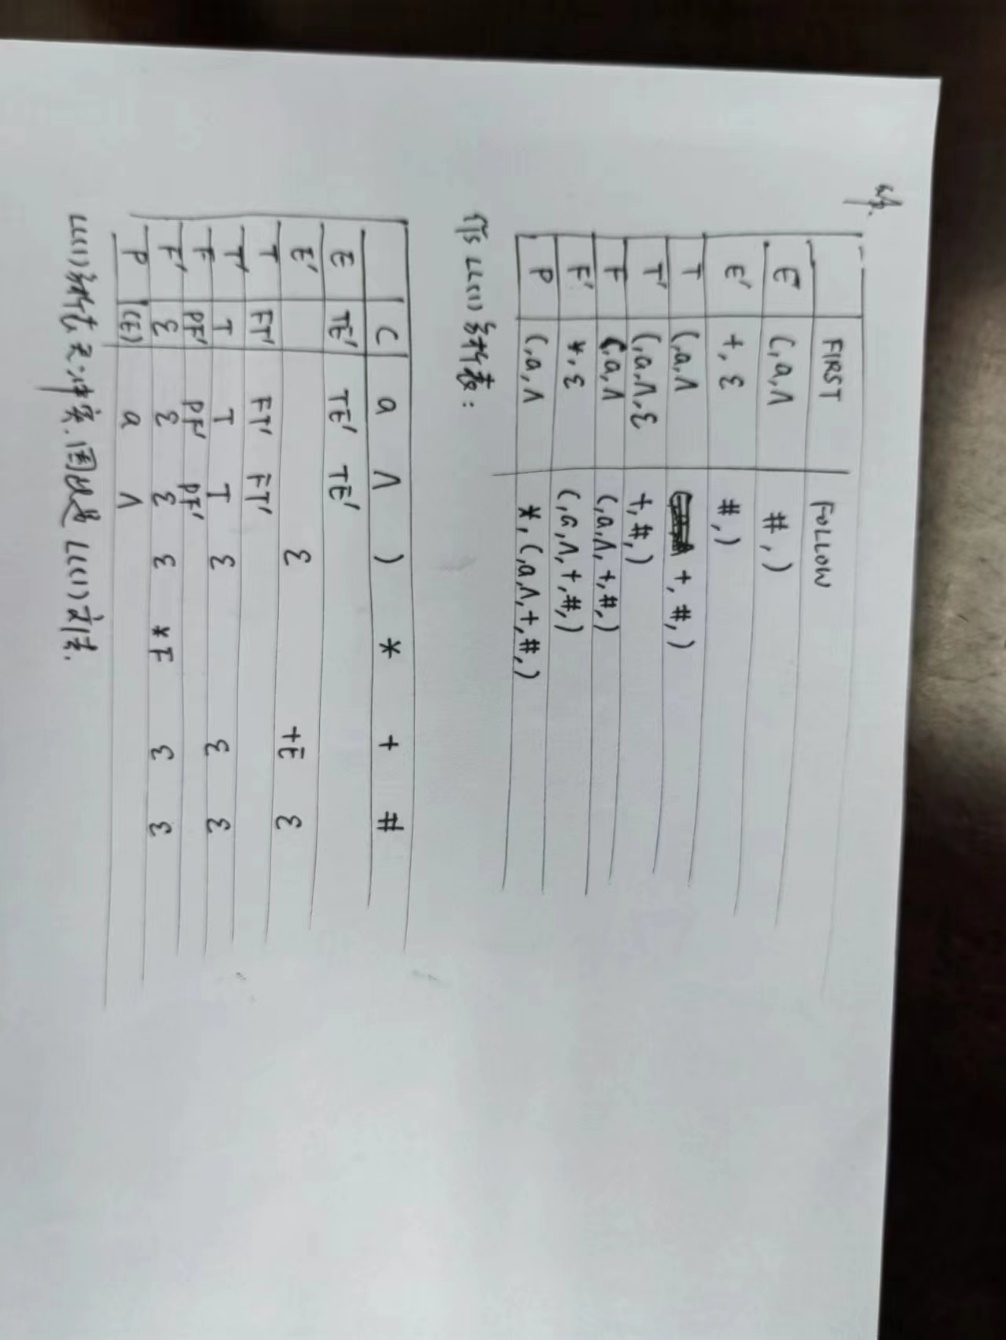 FIRST FOLLOW
E (,a,∧ #,)
E' +,ε #,)
T (,a,∧ +,#,)
T' (,a,∧,ε +,#,)
F (,a,∧ (,a,∧,+,#,)
F' *,ε (,a,∧,+,#,)
P (,a,∧ *,(,a,∧,+,#,)
LL(1)分析表:
( a ∧ ) * + #
E TE' TE' TE'
E' ε +E ε
T FT' FT' FT'
T' T T T ε ε ε
F PF' PF' PF'
F' ε ε ε ε *F ε ε
P (E) a ∧
LL(1)分析表无冲突.因此是LL(1)文法.